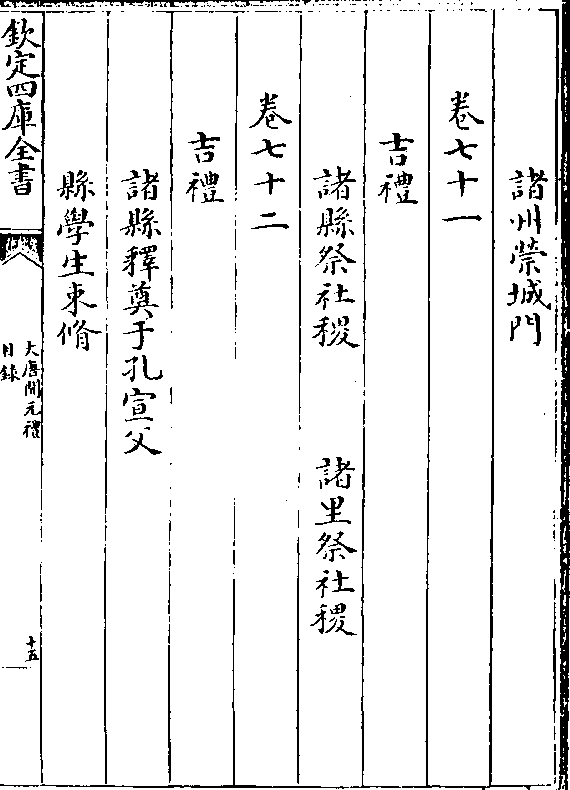 諸州禜城門
卷七十一
吉禮
諸縣祭社稷　諸里祭社稷
卷七十二
吉禮
諸縣釋奠于孔宣父
縣學生束脩
欽定四庫全書
大唐開元禮
目錄
十五